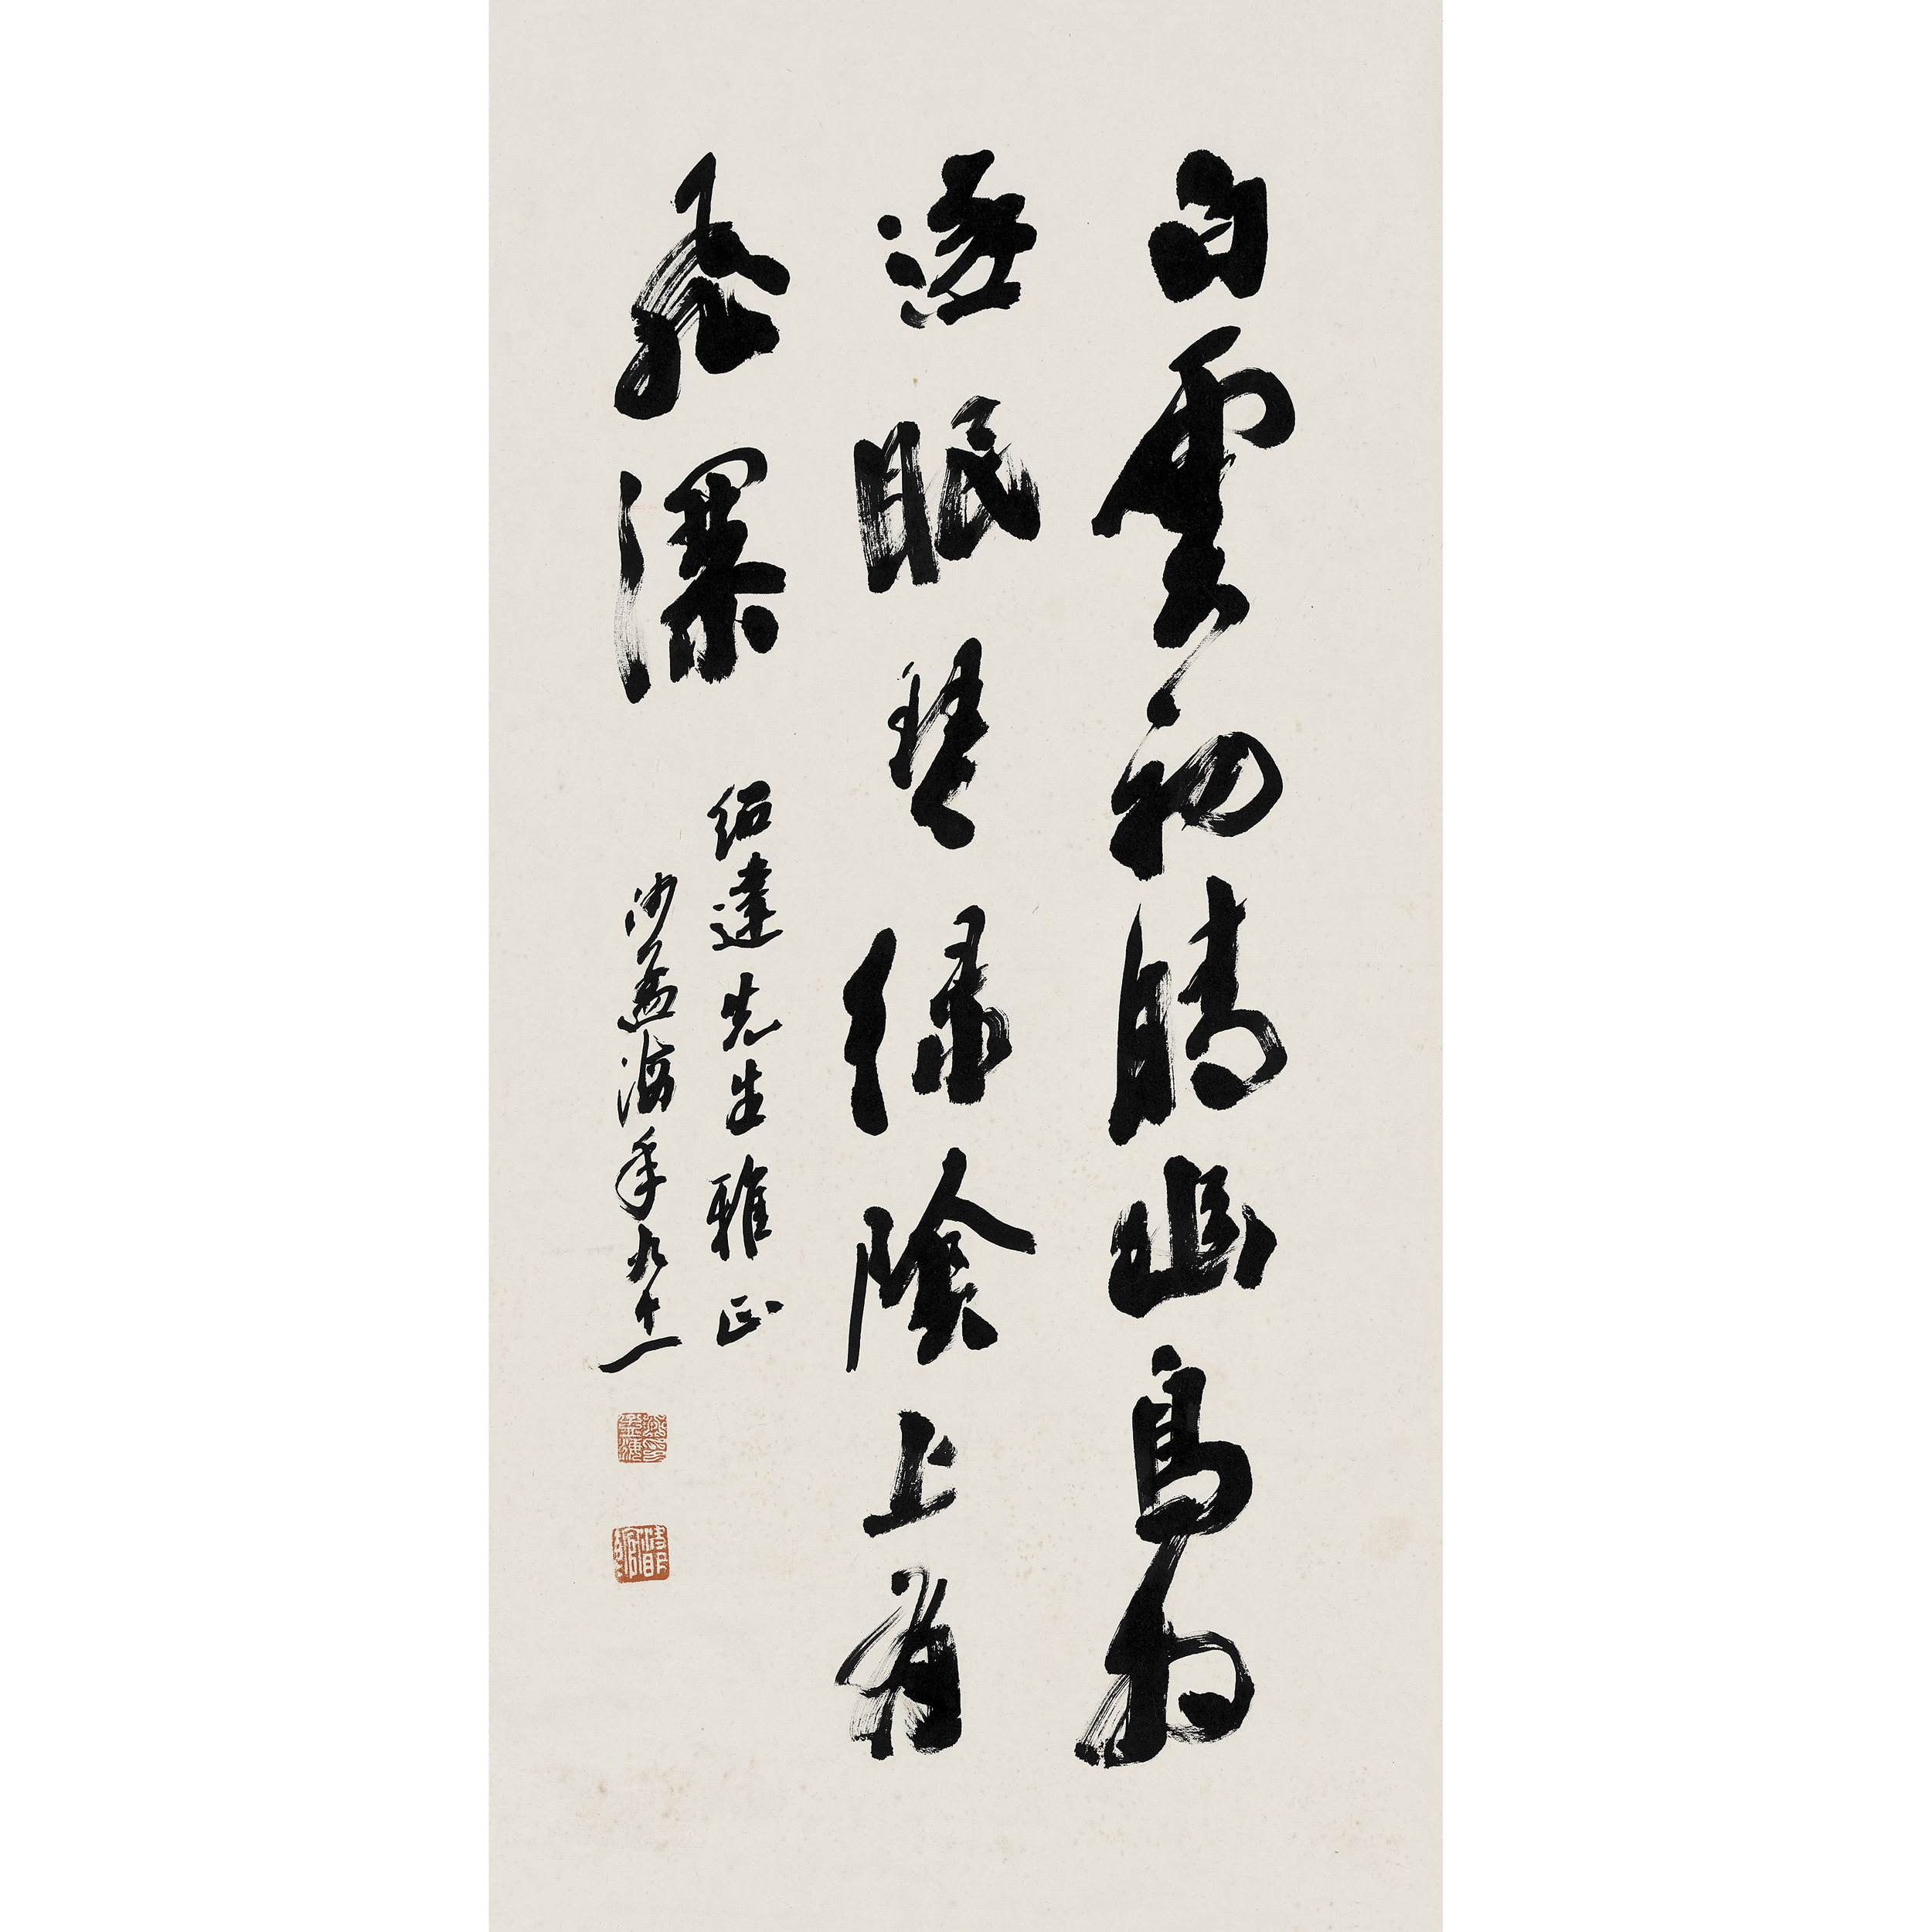 白雲初晴幽鳥相
逐眠琴綠陰上有
飛瀑
紹達先生雅正
沙孟海年九十一